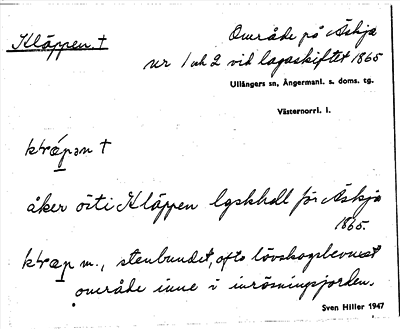 Kläppen. †
Område på Äskja
nr 1 och 2 vid lagaskiftet 1865
Ullångers sn, Ångermanl. s. doms. tg.
Västernorrl. l.
åker östi Kläppen lgskhdl för Äskja
1865.
m., stenbundet, ofta lövskogsbevuxet
område inne i inrösningsjorden.
Sven Hiller 1947